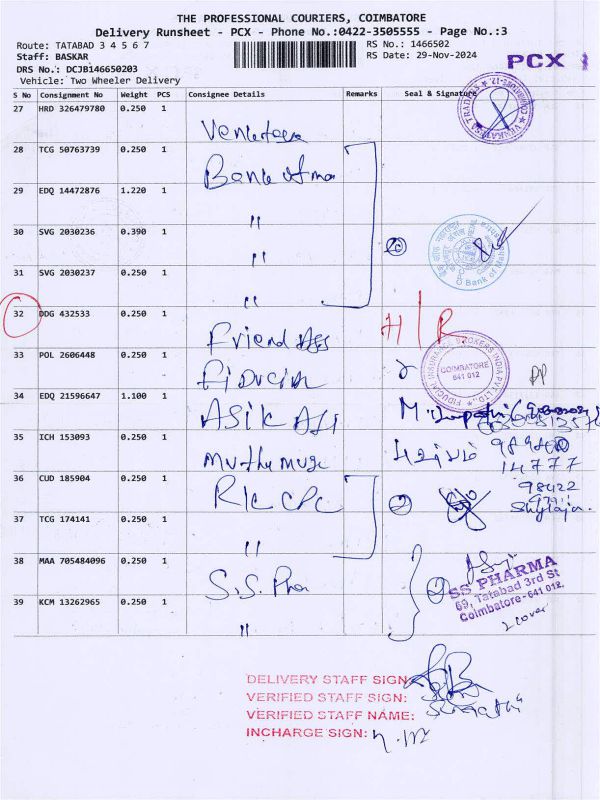 THE PROFESSIONAL COURIERS, COIMBATORE
Delivery Runsheet - PCX - Phone No.:0422-3505555 - Page No.:3
Route: TATABAD 3 4 5 6 7
RS No.: 1466502
Staff: BASKAR
RS Date: 29-Nov-2024
DRS No.: DCJB146650203
PCX 1
Vehicle: Two Wheeler Delivery
S No Consignment No Weight PCS Consignee Details Remarks Seal & Signature
27 HRD 326479780 0.250 1
28 TCG 50763739 0.250 1
29 EDQ 14472876 1.220 1 "
30 SVG 2030236 0.390 1 "
31 SVG 2030237 0.250 1 "
Bank of
32 DDG 432533 0.250 1 Friend
H/R
33 POL 2606448 0.250 1
FIDUCIAL INSURANCE BROKERS INDIA PVT. LTD.
COIMBATORE
641 012
34 EDQ 21596647 1.100 1 ASIK ALI
35 ICH 153093 0.250 1
14777
36 CUD 185904 0.250 1
98422
37 TCG 174141 0.250 1 "
38 MAA 705484096 0.250 1 S.S. Pha
SS PHARMA
69, Tatabad 3rd St
Coimbatore-641 012.
2 cover
39 KCM 13262965 0.250 1 "
DELIVERY STAFF SIGN:
VERIFIED STAFF SIGN:
VERIFIED STAFF NAME:
INCHARGE SIGN: